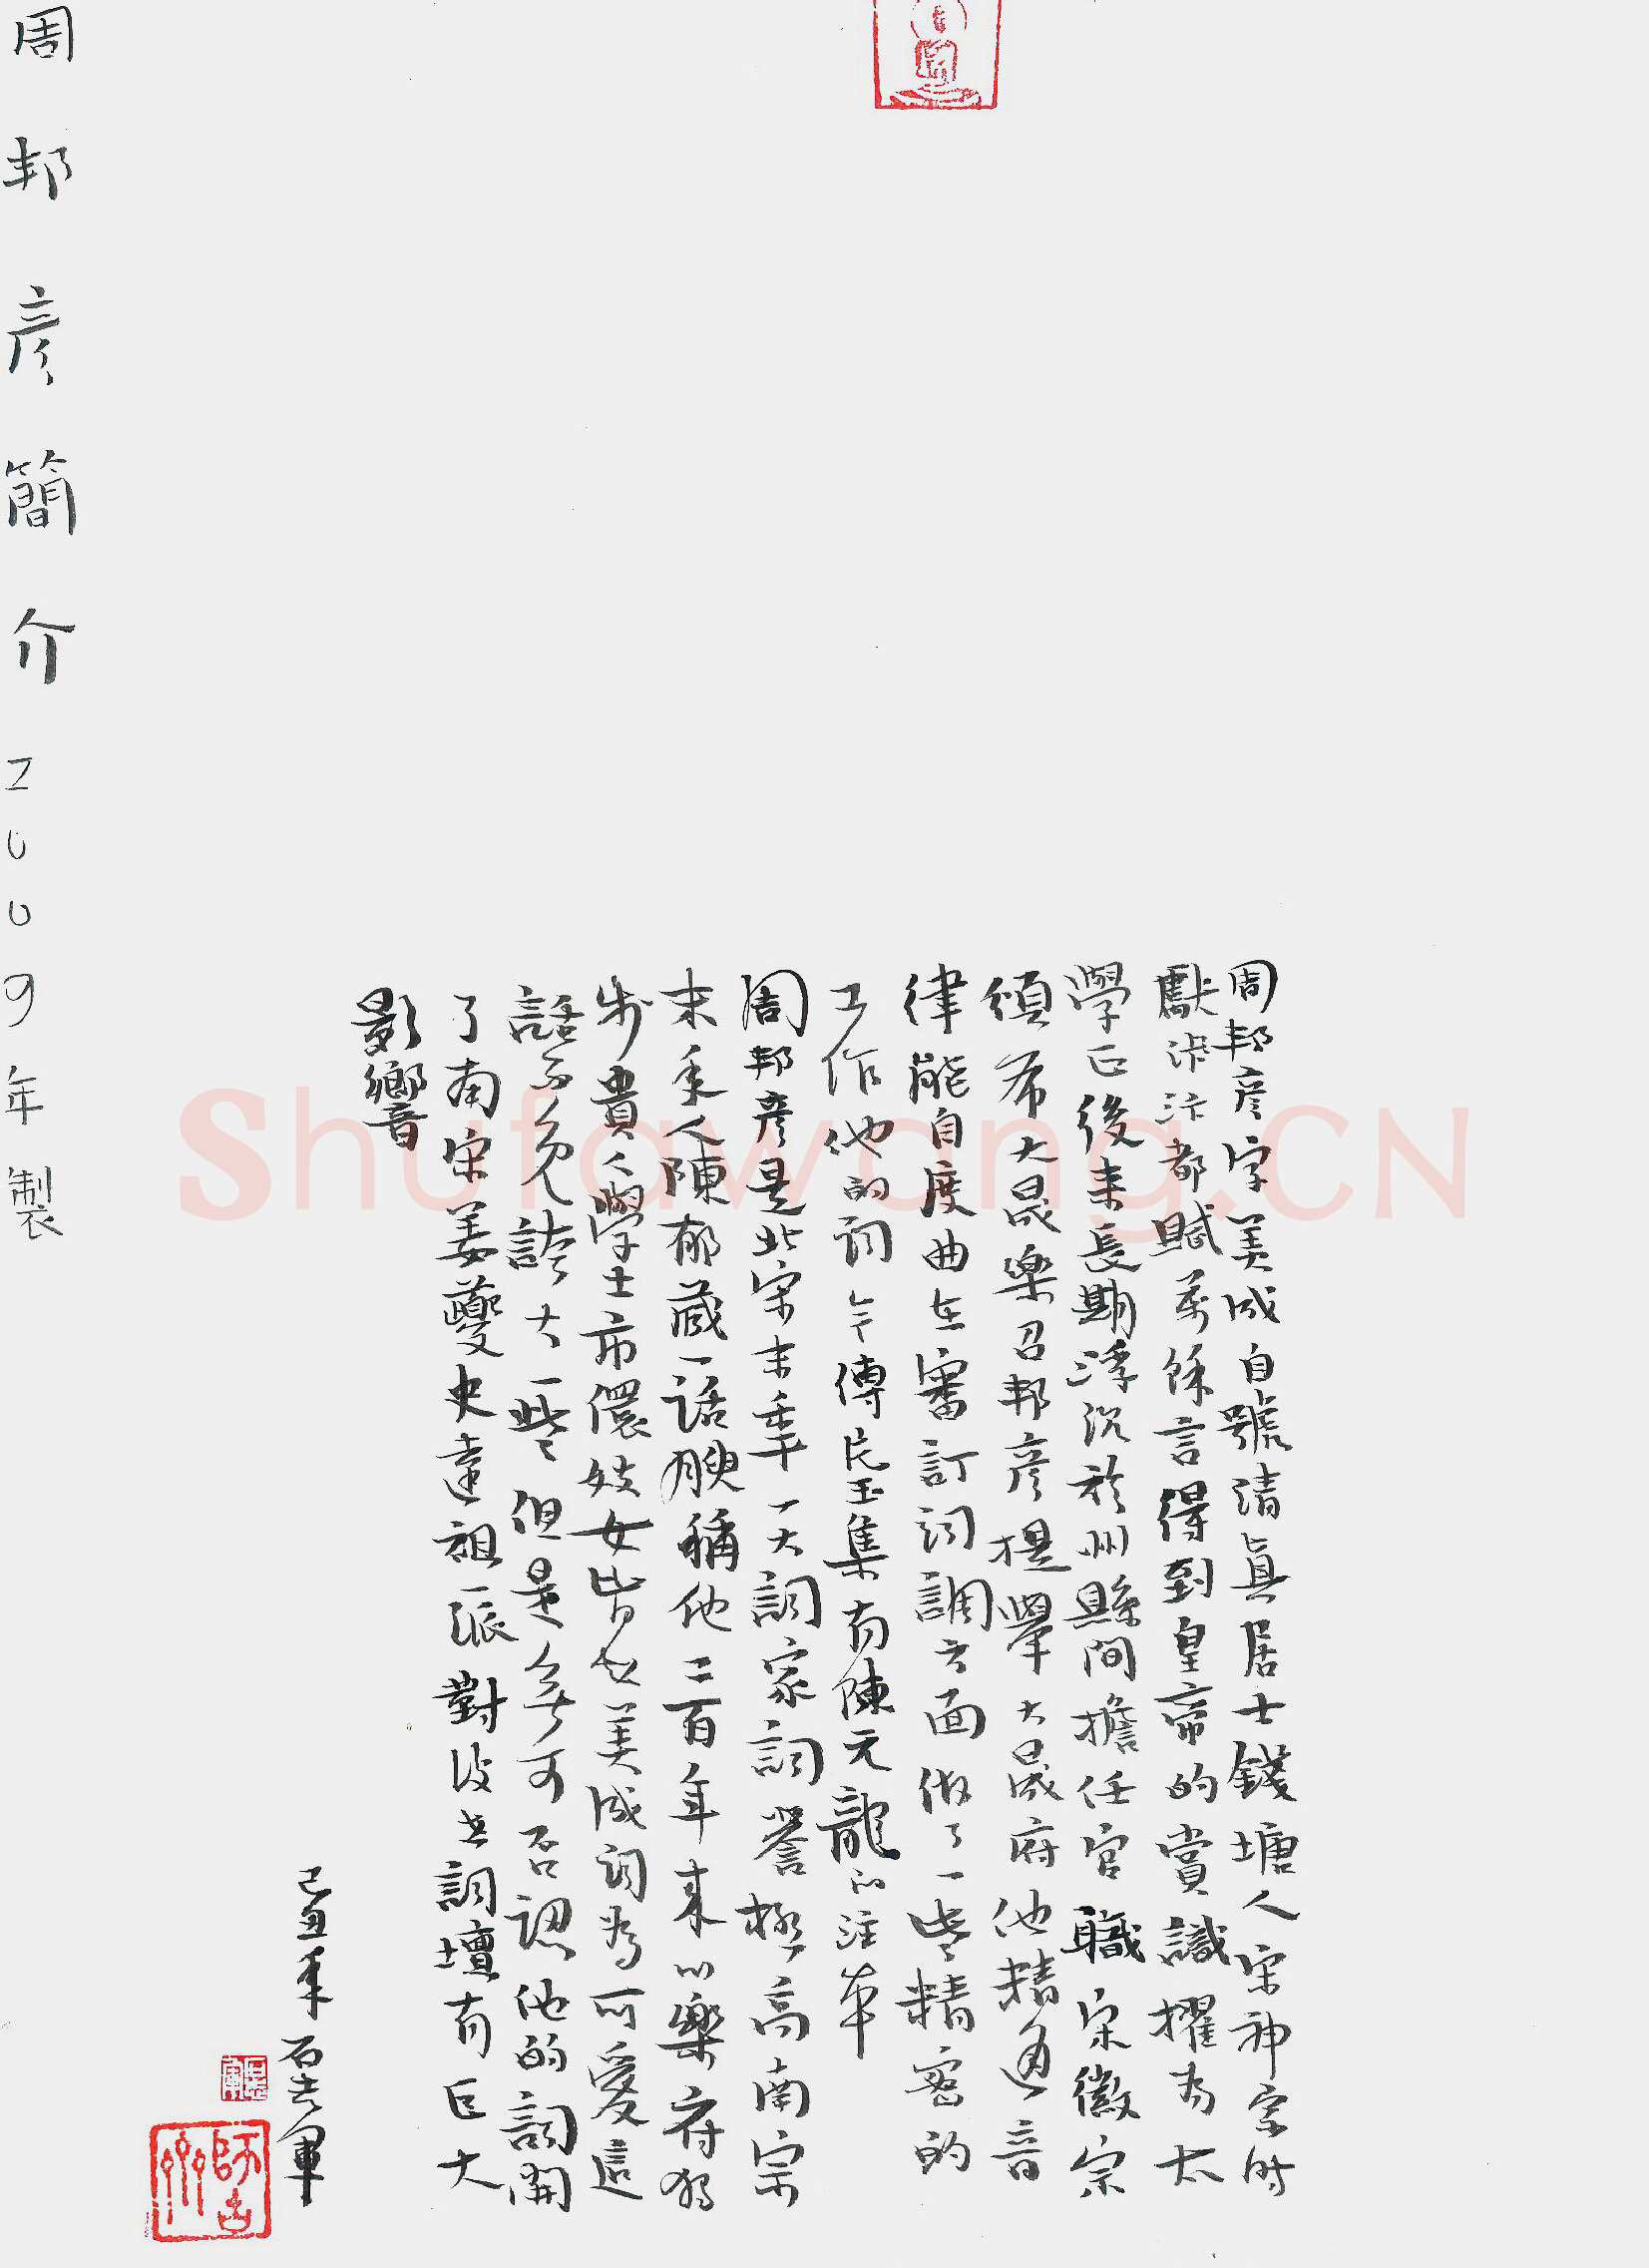 周邦彦字美成自號清真居士錢塘人宋神宗時
獻汴都賦萬餘言得到皇帝的賞識擢為太
學正後来長期浮沉於州縣間擔任官職宋徽宗
頒布大晟樂召邦彦提舉大晟府他精通音
律能自度曲在審訂詞調方面做了一些精密的
工作他的词今傳片玉集有陳元龍的注本
周邦彦是北宋末年一大詞家詞譽極高南宗
末年人陳郁藏一話腴稱他二百年来以樂府独
步貴人學士市儇妓女皆知美成词為可愛這
話不免誇大一些但是無可否認他的詞開
了南宋姜夔史達祖一派對後世詞壇有巨大
影響
己丑年
周邦彦簡介2009年製
Shufawang.CN